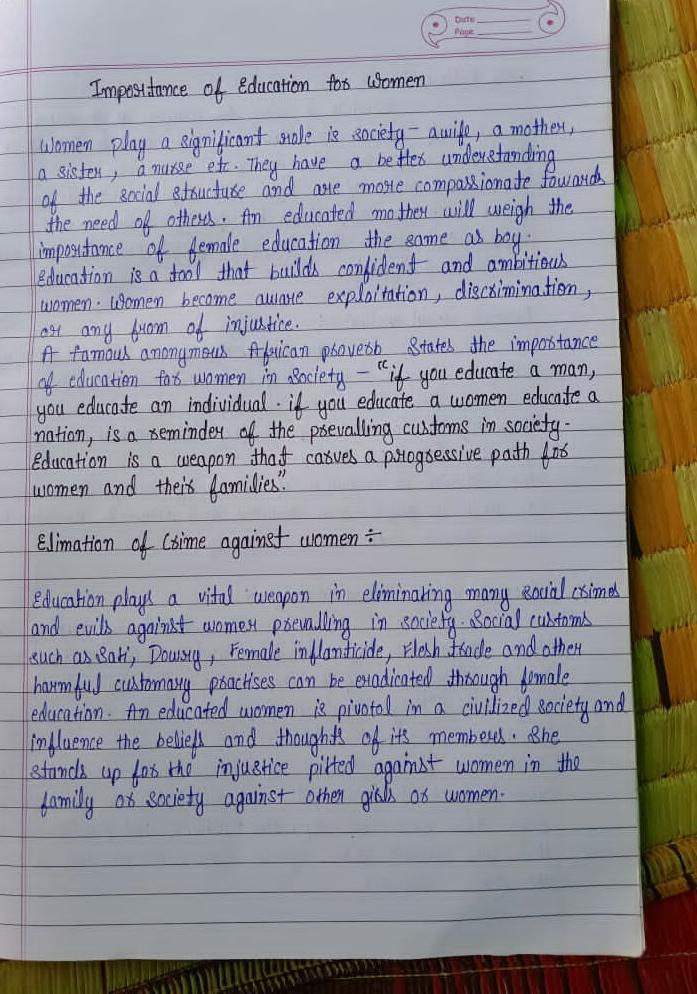 Date
Page
Importance of Education for Women
Women play a significant role is society - a wife, a mother,
a sister, a nurse etc. They have a better understanding
of the social structure and are more compassionate towards
the need of others. An educated mother will weigh the
importance of female education the same as boy.
Education is a tool that builds confident and ambitious
women. Women become aware exploitation, discrimination,
or any from of injustice.
A famous anonymous African proverb States the importance
of education for women in Society - "if you educate a man,
you educate an individual. if you educate a women educate a
nation, is a reminder of the prevalling customs in society.
Education is a weapon that carves a progressive path for
women and their families".
Elimation of Crime against women ÷
Education plays a vital weapon in eliminating many social crimes
and evils against women prevalling in society. Social customs
such as Sati, Dowry, Female inflanticide, Flesh trade and other
harmful customary practises can be eradicated through female
education. An educated women is pivotal in a civilized society and
influence the beliefs and thoughts of its members. She
stands up for the injustice pitted against women in the
family or society against other girls or women.